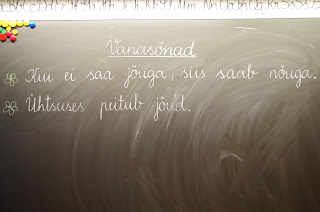 Vanasõnad
Kui ei saa jõuga, siis saab nõuga.
Ühtsuses peitub jõud.